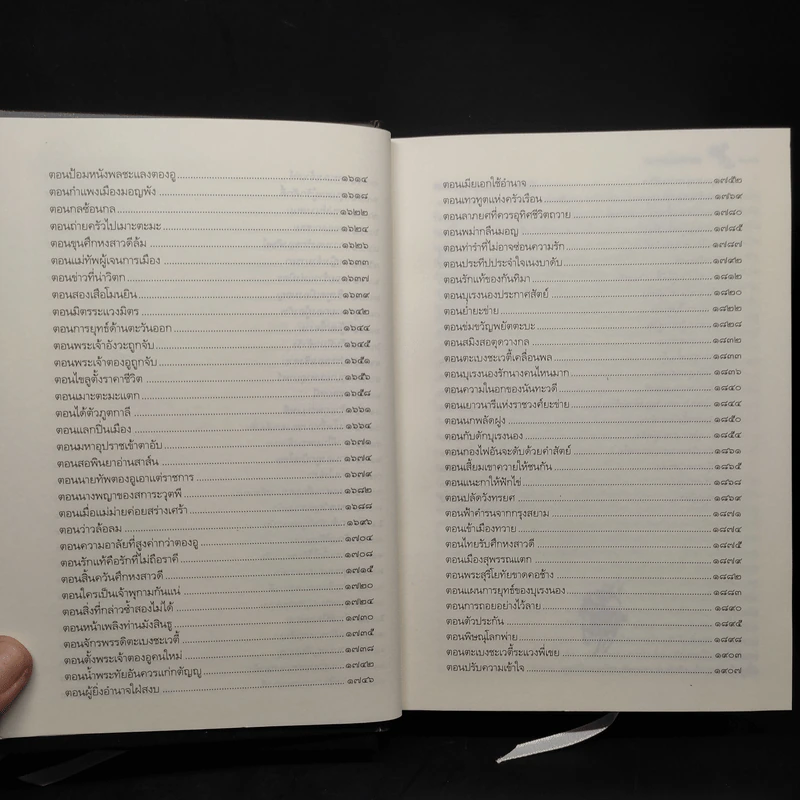 ตอนป้อมหนังพลชะแลงตองอู ๑๖๑๔
ตอนกำแพงเมืองมอญพัง ๑๖๑๘
ตอนกลซ้อนกล ๑๖๒๒
ตอนถ่ายครัวไปเมาะตะมะ ๑๖๒๔
ตอนขุนศึกหงสาวดีล้ม ๑๖๒๖
ตอนแม่ทัพผู้เจนการเมือง ๑๖๓๓
ตอนข่าวที่น่าวิตก ๑๖๓๗
ตอนสองเสือโมนยิน ๑๖๓๙
ตอนมิตรระแวงมิตร ๑๖๔๒
ตอนการยุทธ์ด้านตะวันออก ๑๖๔๔
ตอนพระเจ้าอังวะถูกจับ ๑๖๔๕
ตอนพระเจ้าตองอูถูกจับ ๑๖๕๑
ตอนไขลูตั้งราคาชีวิต ๑๖๕๖
ตอนเมาะตะมะแตก ๑๖๕๘
ตอนได้ตัวภูตกาลี ๑๖๖๑
ตอนแลกปืนเมือง ๑๖๖๔
ตอนมหาอุปราชเข้าตาอับ ๑๖๗๑
ตอนสอพินยาอ่านสาส์น ๑๖๗๔
ตอนนายทัพตองอูเอาแต่ราชการ ๑๖๗๙
ตอนนางพญาของสการะวุตพี ๑๖๘๒
ตอนเมื่อแม่ม่ายค่อยสร่างเศร้า ๑๖๘๘
ตอนว่าวล้อลม ๑๖๙๖
ตอนความอาลัยที่สูงค่ากว่าตองอู ๑๗๐๔
ตอนรักแท้คือรักที่ไม่ถือราคี ๑๗๐๘
ตอนสิ้นควันศึกหงสาวดี ๑๗๑๕
ตอนใครเป็นเจ้าพุกามกันแน่ ๑๗๒๐
ตอนสิ่งที่กล่าวซ้ำสองไม่ได้ ๑๗๒๔
ตอนหน้าเพลิงท่านมังสินธู ๑๗๓๐
ตอนจักรพรรดิตะเบงชะเวตี้ ๑๗๓๕
ตอนตั้งพระเจ้าตองอูคนใหม่ ๑๗๓๘
ตอนน้ำพระทัยอันควรแก่กตัญญู ๑๗๔๒
ตอนผู้ยิ่งอำนาจใฝ่สงบ ๑๗๔๖
ตอนเมียเอกใช้อำนาจ ๑๗๕๒
ตอนเทวทูตแห่งครัวเรือน ๑๗๖๙
ตอนลาภยศที่ควรอุทิศชีวิตถวาย ๑๗๘๐
ตอนพม่ากลืนมอญ ๑๗๘๕
ตอนท่ารำที่ไม่อาจซ่อนความรัก ๑๗๘๗
ตอนประทีปประจำใจเนงบาตับ ๑๗๙๒
ตอนรักแท้ของกันทิมา ๑๘๑๒
ตอนบุเรงนองประกาศสัตย์ ๑๘๒๐
ตอนย่ำยะข่าย ๑๘๒๒
ตอนข่มขวัญพยัตตะบะ ๑๘๒๘
ตอนสมิงสอตุดวางกล ๑๘๓๒
ตอนตะเบงชะเวตี้เคลื่อนพล ๑๘๓๓
ตอนบุเรงนองรักนางคนไหนมาก ๑๘๓๖
ตอนความในอกของนันทะวดี ๑๘๔๐
ตอนเยาวนารีแห่งราชวงศ์ยะข่าย ๑๘๔๔
ตอนนกพลัดฝูง ๑๘๕๐
ตอนกับดักบุเรงนอง ๑๘๕๔
ตอนกองไฟอันจะดับด้วยคำสัตย์ ๑๘๖๑
ตอนเสี้ยมเขาควายให้ชนกัน ๑๘๖๕
ตอนแนะกาให้ฟักไข่ ๑๘๖๘
ตอนปลัดวังทรยศ ๑๘๖๙
ตอนฟ้าคำรนจากกรุงสยาม ๑๘๗๑
ตอนเข้าเมืองทวาย ๑๘๗๔
ตอนไทยรับศึกหงสาวดี ๑๘๗๕
ตอนเมืองสุพรรณแตก ๑๘๗๙
ตอนพระสุริโยทัยขาดคอช้าง ๑๘๘๒
ตอนแผนการยุทธ์ของบุเรงนอง ๑๘๘๓
ตอนการถอยอย่างไว้ลาย ๑๘๙๐
ตอนตัวประกัน ๑๘๙๕
ตอนพิษณุโลกพ่าย ๑๘๙๘
ตอนตะเบงชะเวตี้ระแวงพี่เขย ๑๙๐๓
ตอนปรับความเข้าใจ ๑๙๐๗